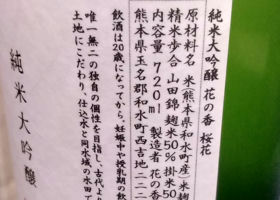 純米大吟醸 花の香 桜花
原材料名 米(熊本県和水町産)・米麹
精米歩合 山田錦 麹米50% 掛米50
内容量 720ml 製造者 花の香
熊本県玉名郡和水町西吉地二二二
飲酒は20歳になってから。妊娠中や授乳期の飲
唯一無二の独自の個性を目指し、古代より
土地にこだわり、仕込水と同水域の水田で
純米大吟醸